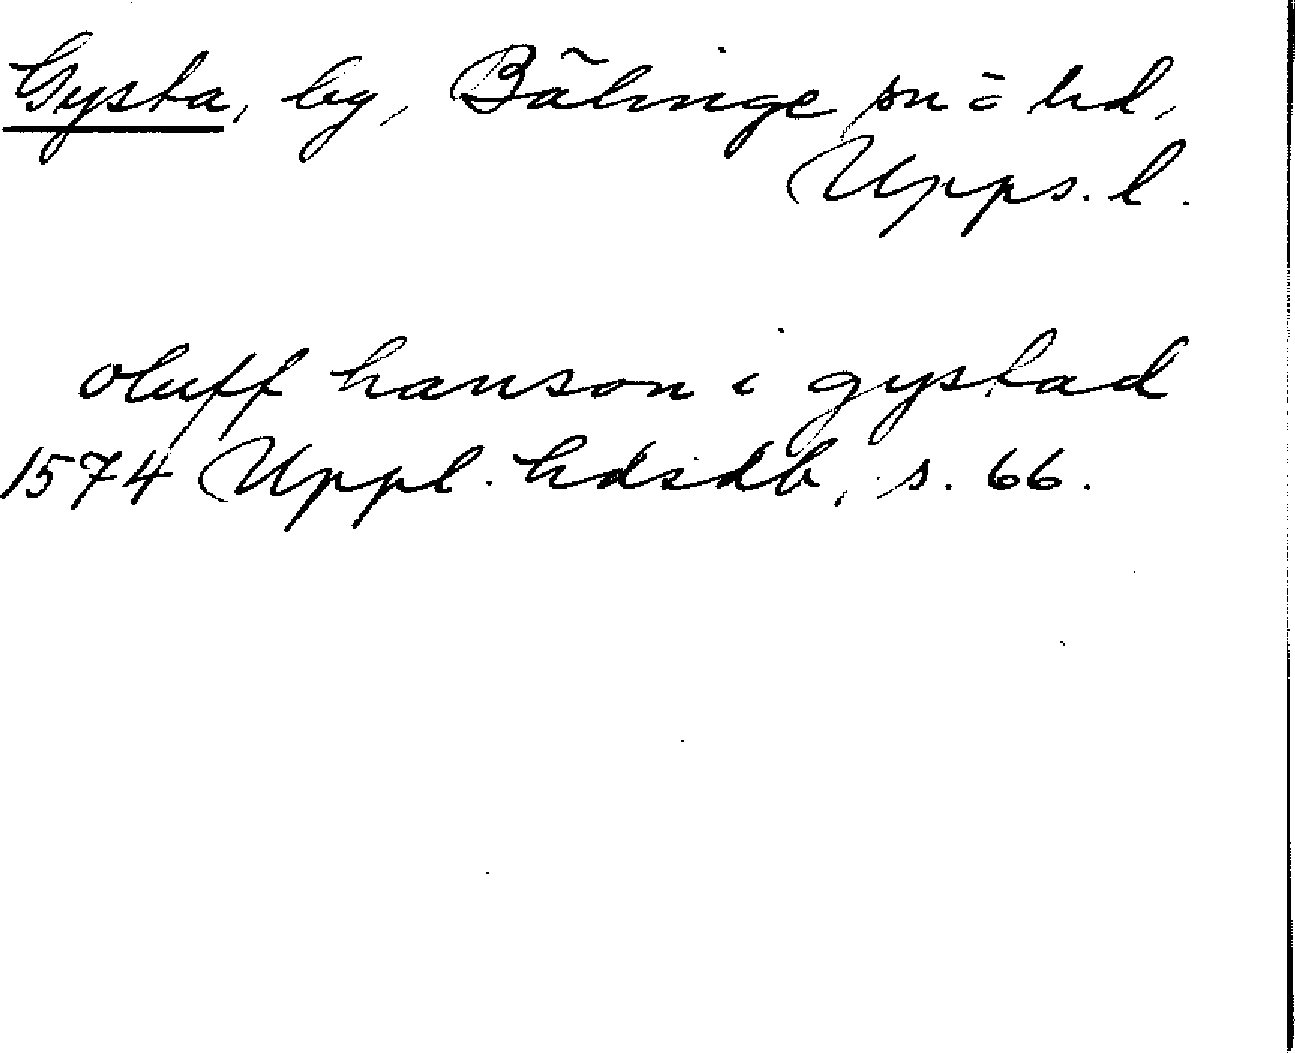 Gysta, by, Bälinge sn o hd,
Upps. l.
oluff hanson i gystad
1574 Uppl. hdsdb, s. 66.